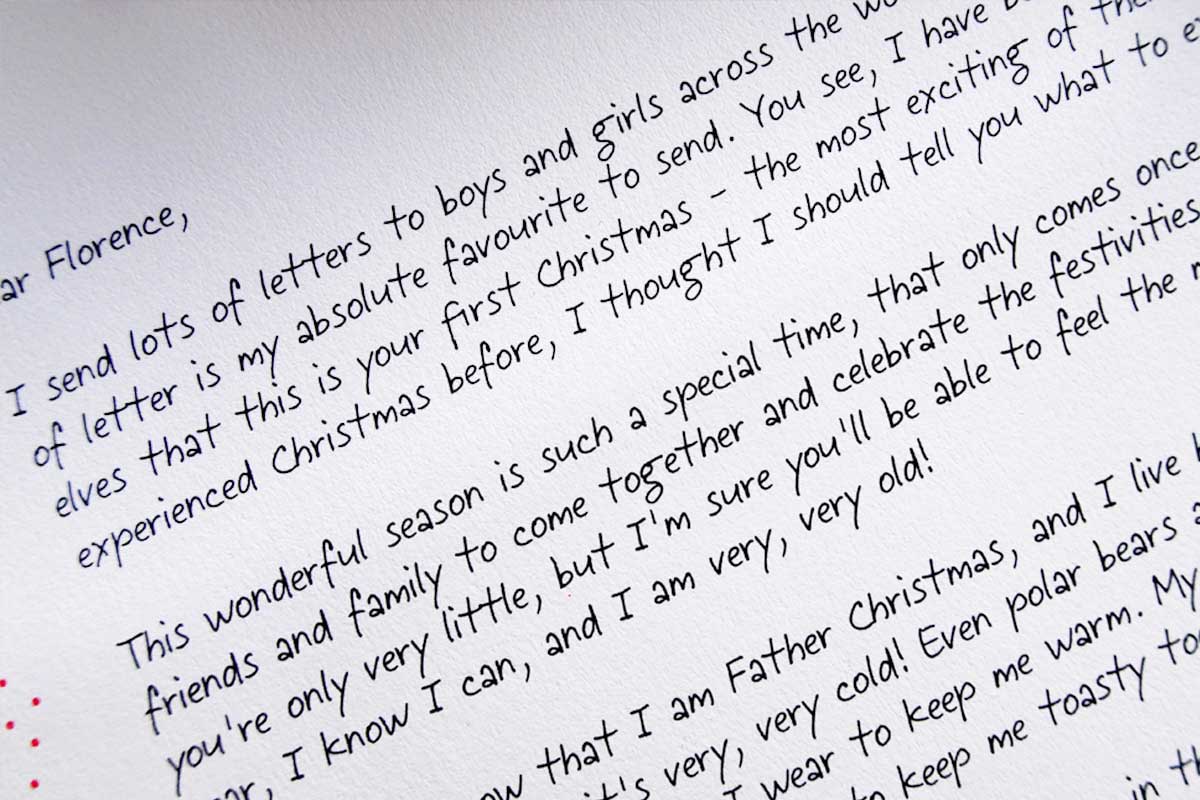 Florence,
I send lots of letters to boys and girls across the
of letter is my absolute favourite to send. You see, I have
elves that this is your first Christmas - the most exciting of
experienced Christmas before, I thought I should tell you what to
This wonderful season is such a special time, that only comes once
friends and family to come together and celebrate the festivities
you're only very little, but I'm sure you'll be able to feel the
I know I can, and I am very, very old!
that I am Father Christmas, and I live
it's very, very cold! Even polar bears
I wear to keep me warm. My
keep me toasty
in